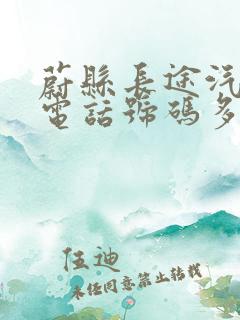 蔚縣長途汽
電話號碼多
伍迪
未经同意禁止转载